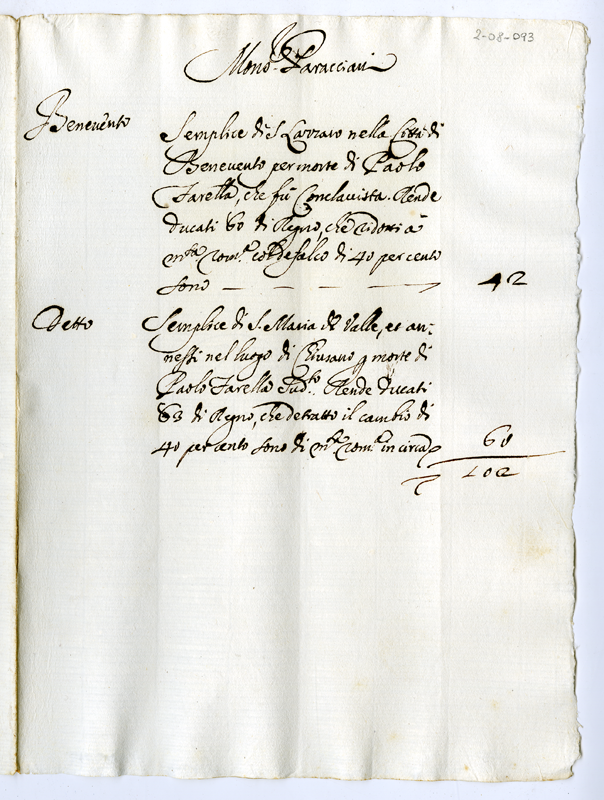 2-08-093
Mons.r Paracciani
Benevento
Semplice di S. Lazzaro nella Città di
Benevento per morte di Paolo
Farella, che fù Conclavista. Rende
ducati 60 di Regno, che ridotti à
m.ta rom.a col defalco di 40 per cento
sono — — — — 42
Detto
Semplice di S. Maria di Valle, et an-
nessi nel luogo di Chiusano p morte di
Paolo Farella Sud.to. Rende ducati
83 di Regno, che detratto il cambio di
40 per cento sono di m.ta rom.a in circa 60
102